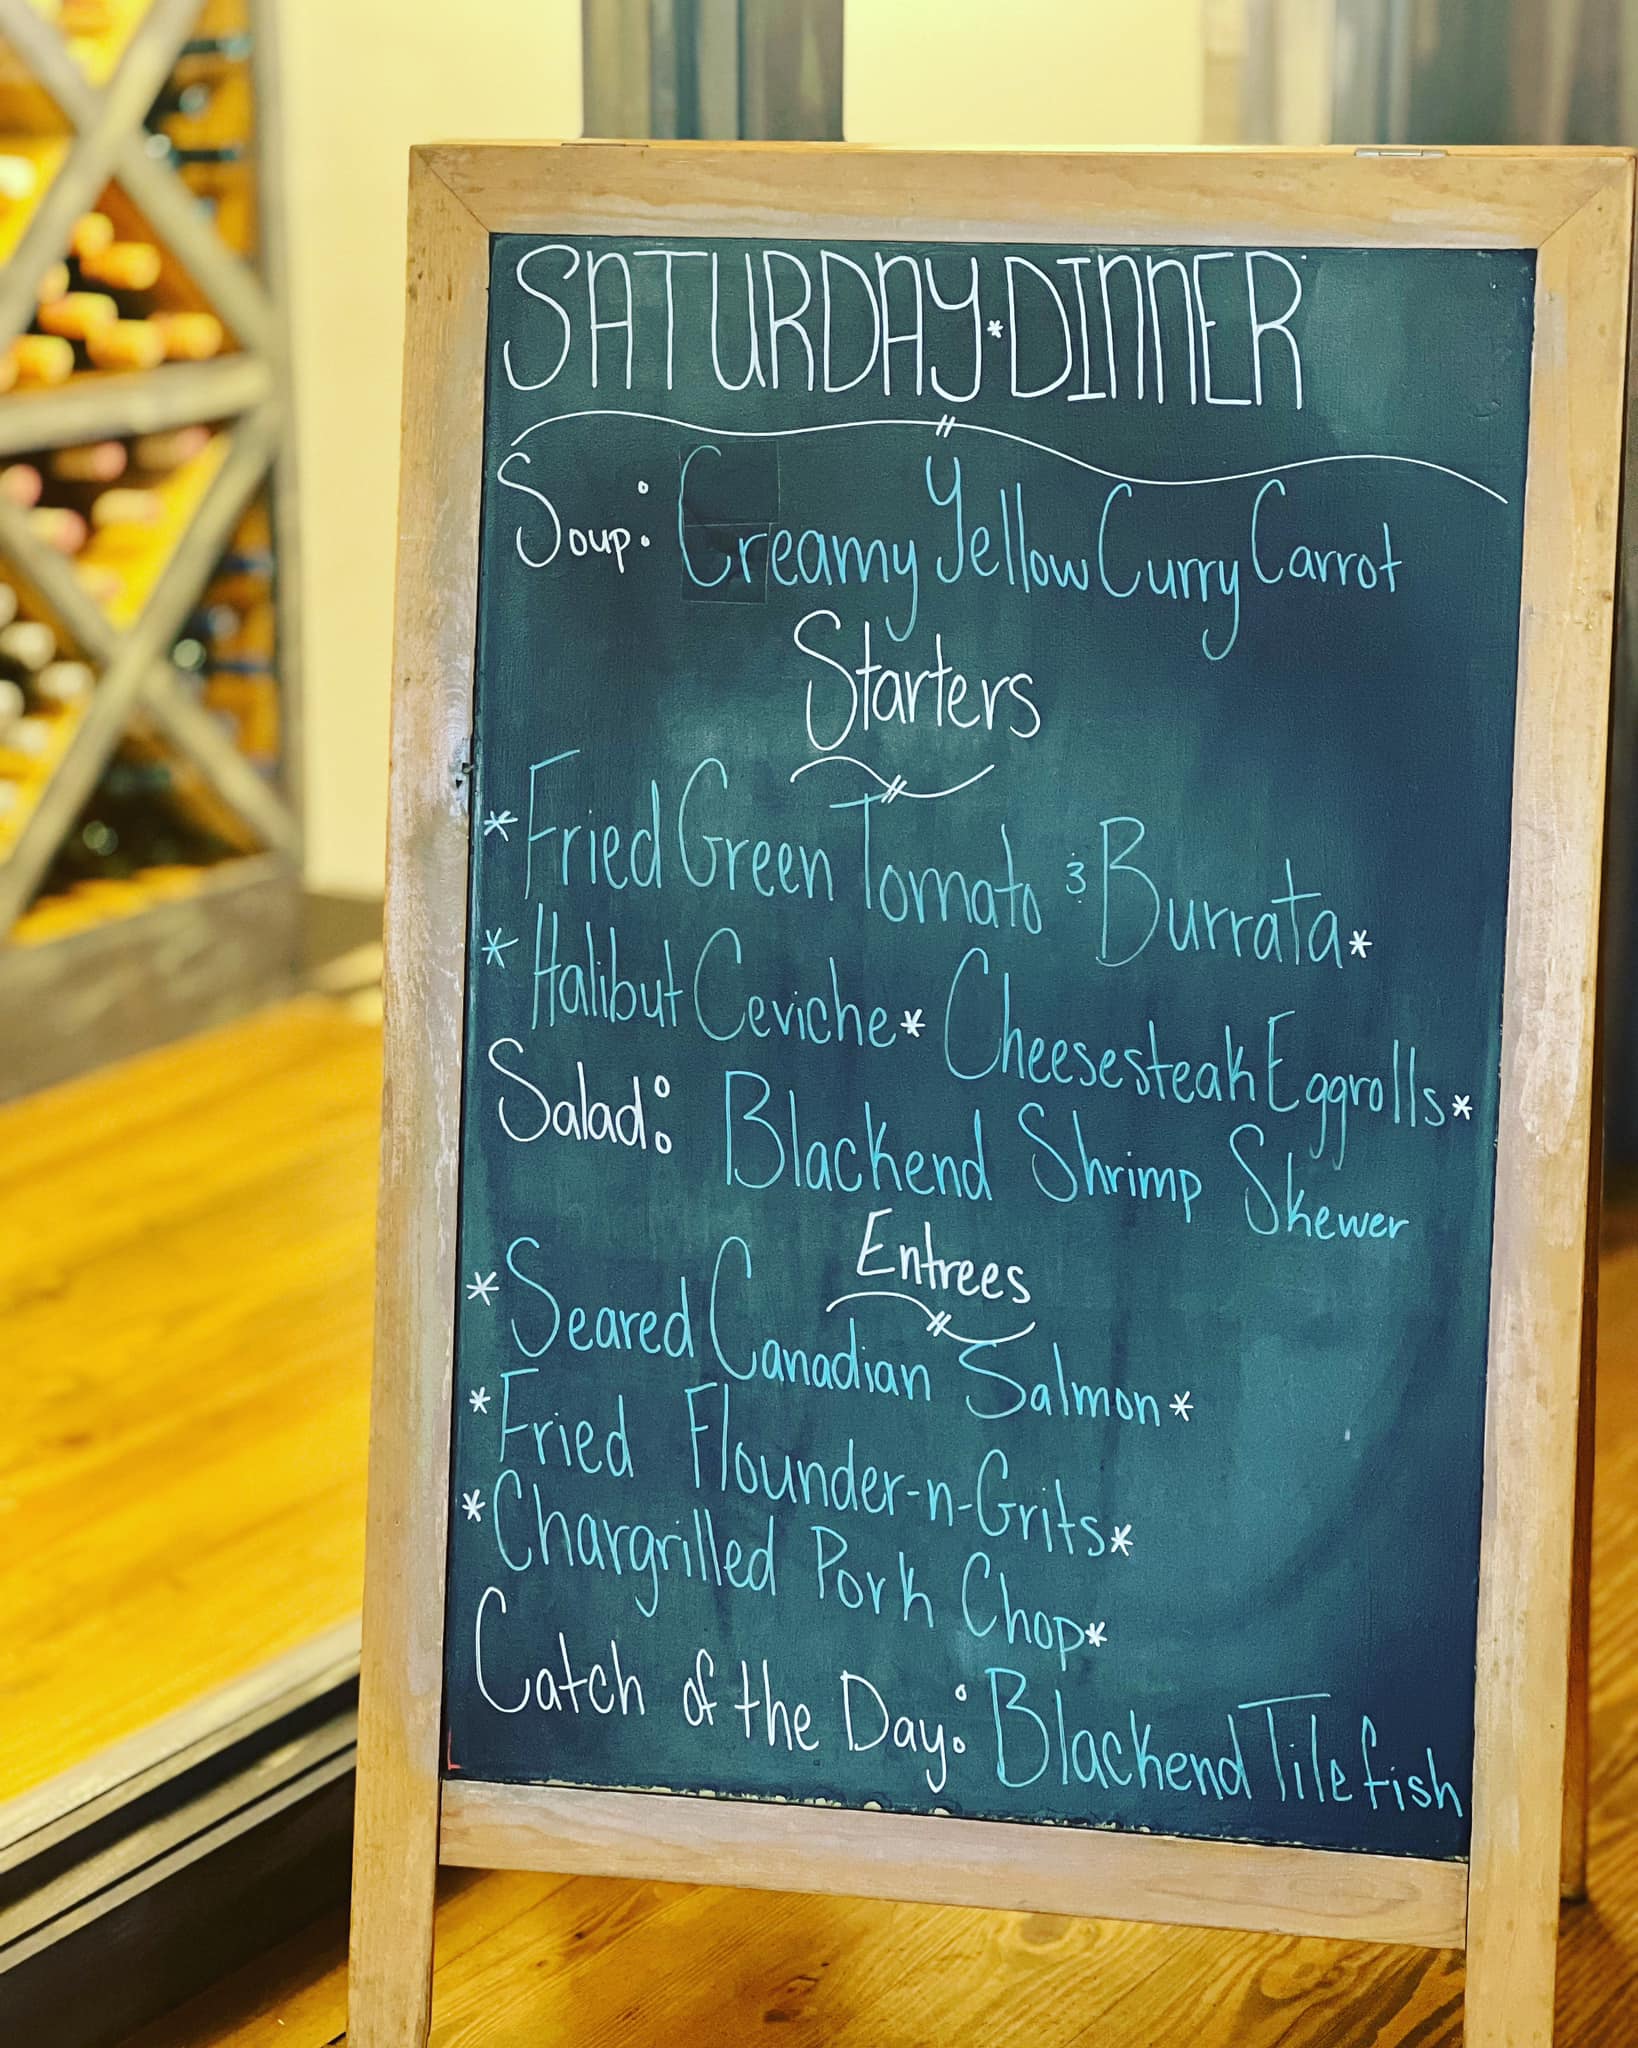 SATURDAY*DINNER
Soup: Creamy Yellow Curry Carrot
Starters
*Fried Green Tomato & Burrata*
*Halibut Ceviche* Cheesesteak Eggrolls*
Salad: Blackend Shrimp Skewer
Entrees
*Seared Canadian Salmon*
*Fried Flounder-n-Grits*
*Chargrilled Pork Chop*
Catch of the Day: Blackend Tilefish